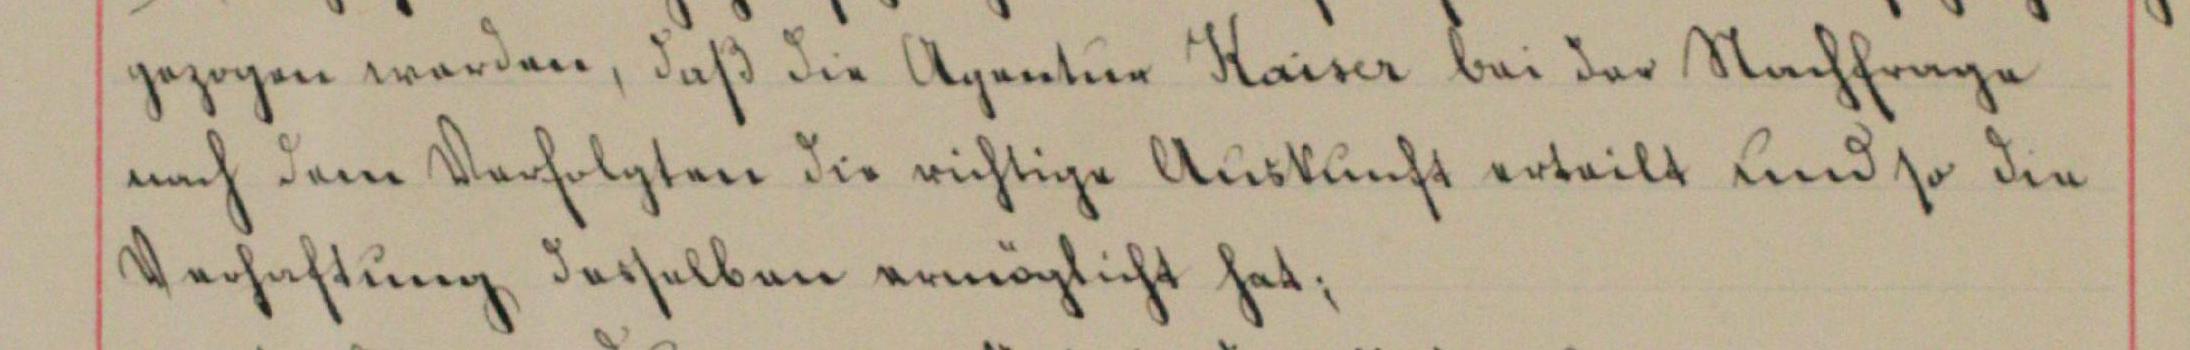 gezogen werden, daß die Agentur Kaiser bei der Nachfrage
nach dem Verfolgten die richtige Auskunft erteilt und so die
Verhaftung desselben ermöglicht hat;